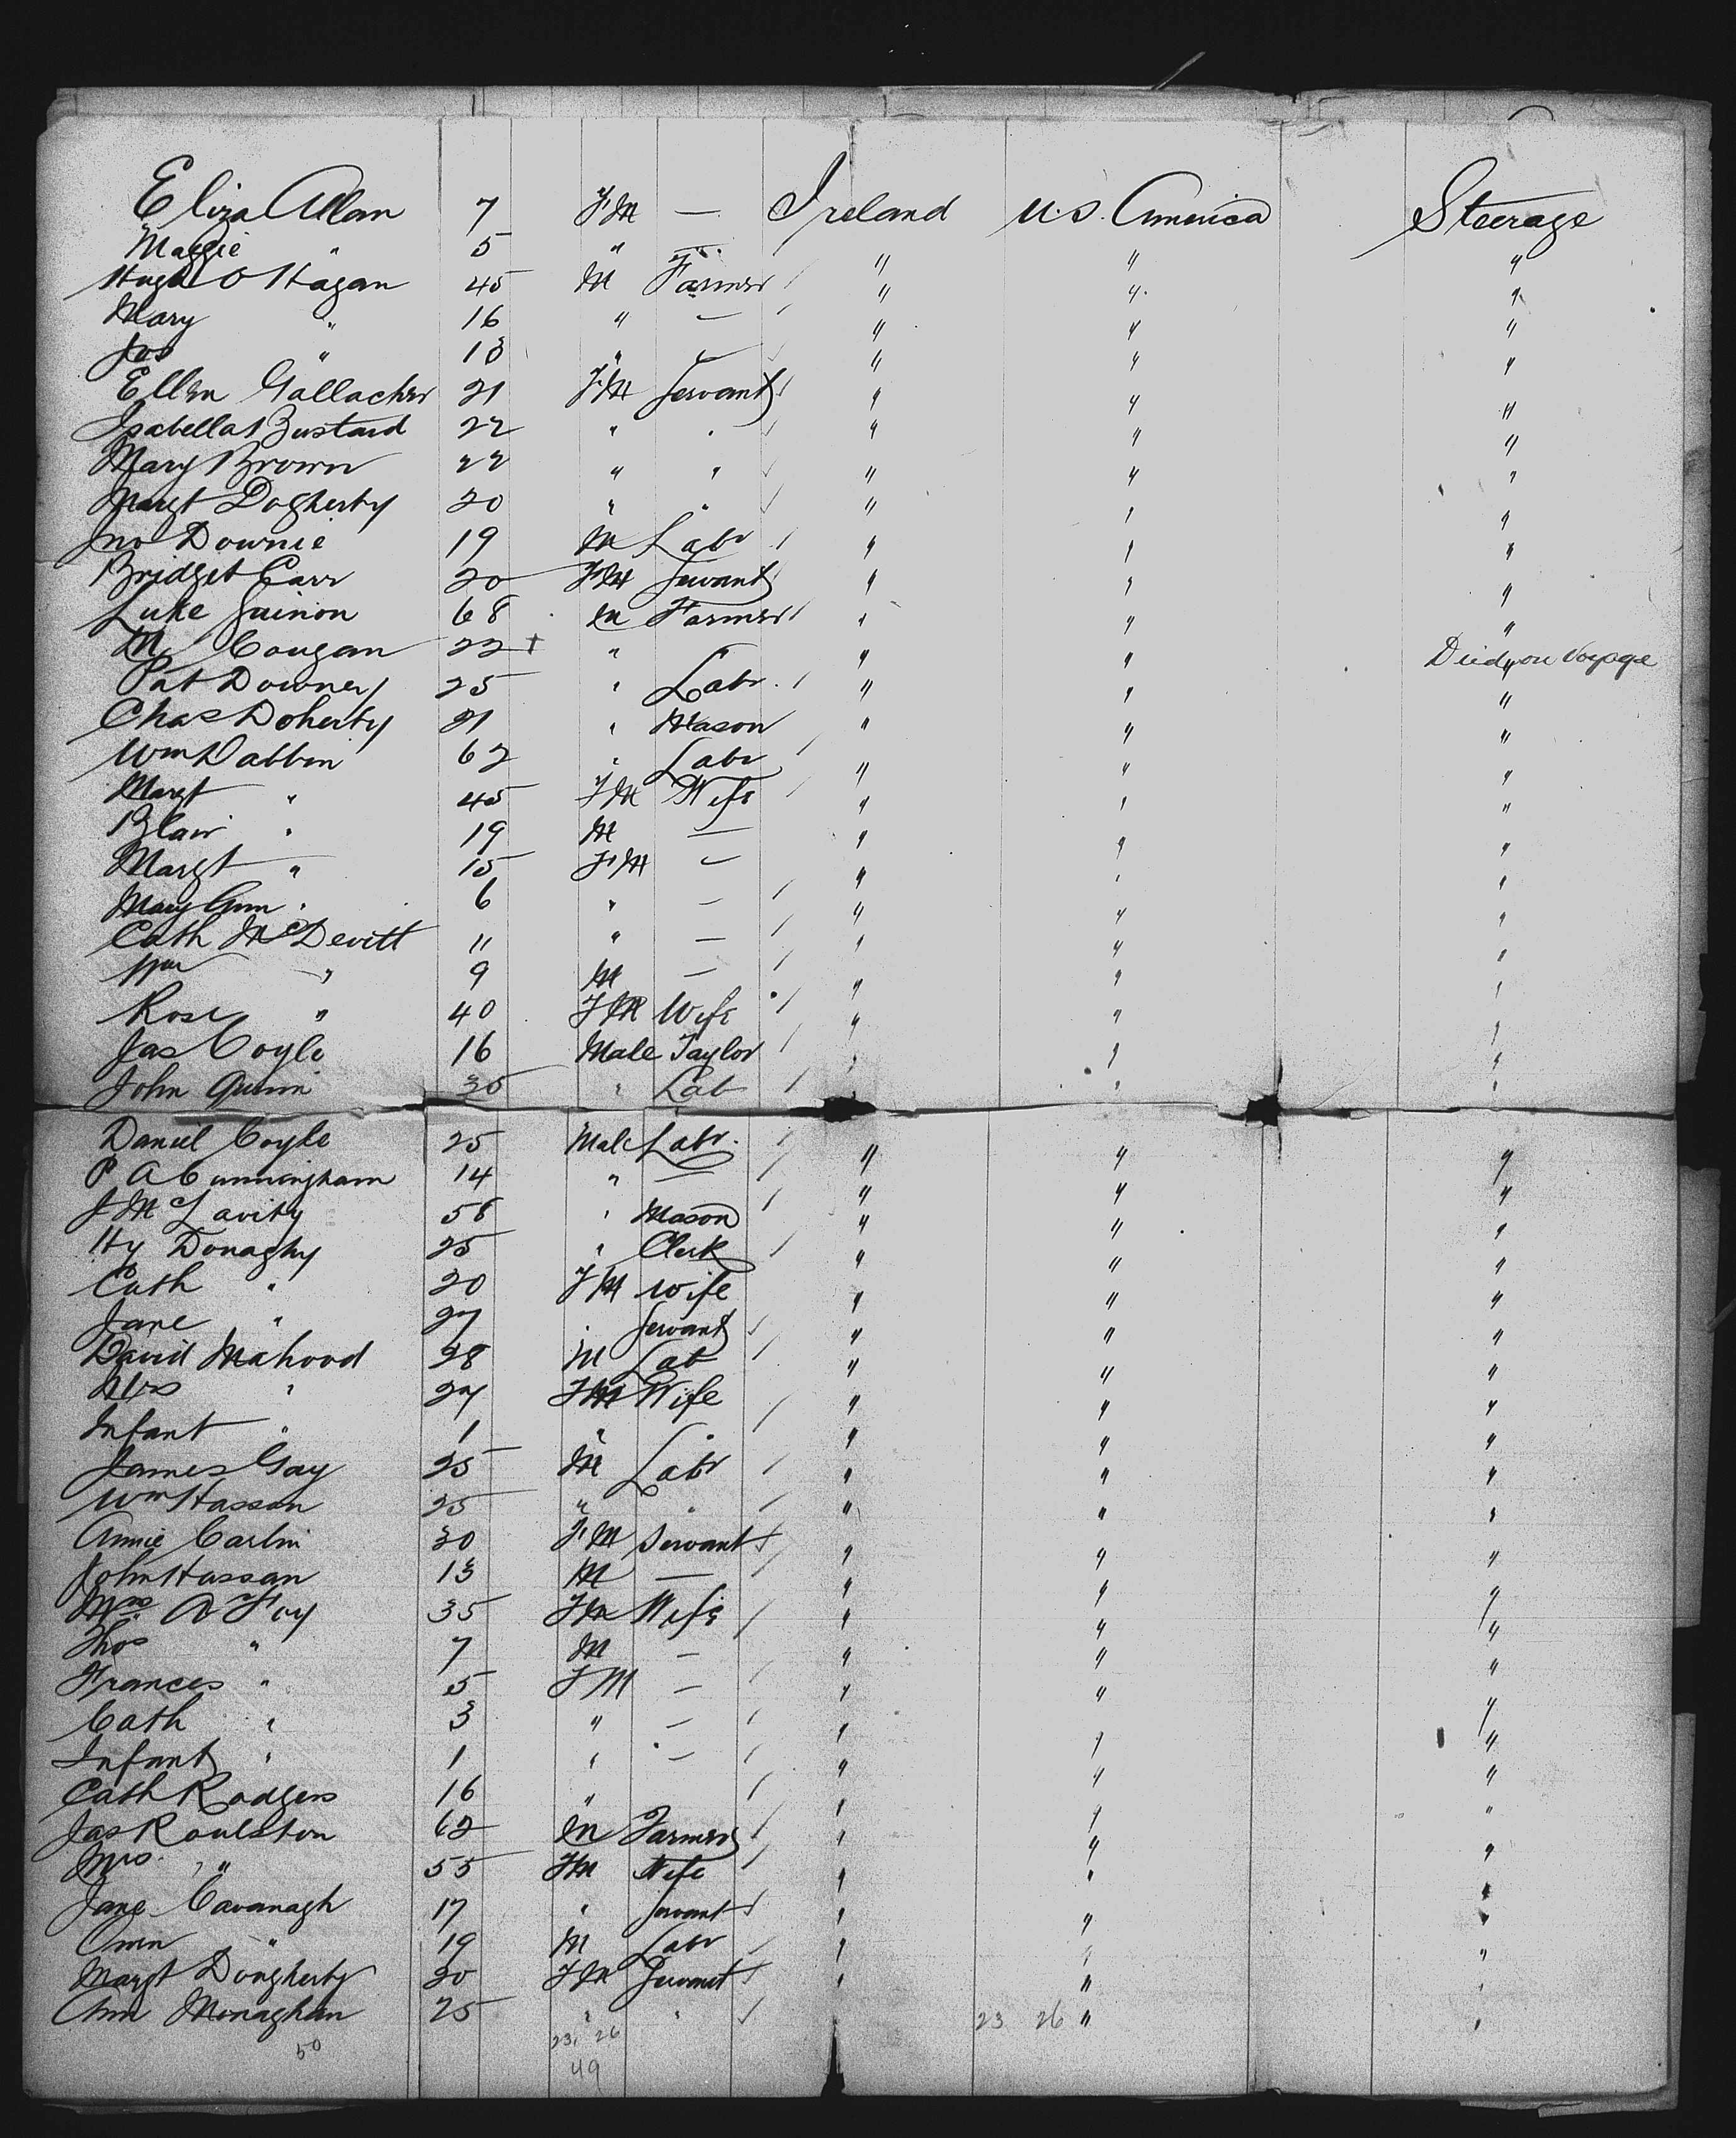 Eliza Allan 7 FM — Ireland U.S. America Steerage
Maggie " 5 " — " " "
Hugh O Hagan 45 M Farmer " " "
Mary " 16 " — " " "
Jos " 13 " — " " "
Ellen Gallacher 21 FM Servant " " "
Isabella Bustard 22 " " " " "
Mary Brown 22 " " " " "
Margt Dogherty 20 " " " " "
Jno Downie 19 M Labr " " "
Bridget Carr 20 FM Servant " " "
Luke Guinon 68 M Farmer " " "
M Cougan 22 + " " " Died on Voyage "
Pat Downey 25 " Labr. " " "
Chas Doherty 21 " Mason " " "
Wm Dabbin 62 " Labr " " "
Margt " 45 FM Wife " " "
Blair " 19 M — " " "
Margt " 15 FM — " " "
Mary Ann " 6 " — " " "
Cath McDevitt 11 " — " " "
Wm " 9 M — " " "
Rose " 40 FM Wife " " "
Jas Coyle 16 Male Taylor " " "
John Quinn 35 " Lab " " "
Daniel Coyle 25 Male Labr. " " "
P A Cunningham 14 " — " " "
J McLavity 58 " Mason " " "
Hy Donaghy 25 " Clerk " " "
Cath " 20 FM wife " " "
Jane " 27 " Servant " " "
David Mahood 28 M Lab " " "
Mrs " 27 FM Wife " " "
Infant " 1 " " " " "
James Gay 25 M Labr " " "
Wm Hassan 25 " " " " "
Annie Carlin 30 FM Servant " " "
John Hassan 13 M — " " "
Mrs A Foy 35 FM Wife " " "
Thos " 7 M — " " "
Frances " 5 FM — " " "
Cath " 3 " — " " "
Infant " 1 " — " " "
Cath Rodgers 16 " " " "
Jas Roulston 62 M Farmer " " "
Mrs. " 55 FM Wife " " "
Jane Cavanagh 17 " Servant " " "
Owen " 19 M Labr " " "
Margt Dougherty 30 FM Servant " " "
Ann Monaghan 25 " " " 23 26 " "
50 23, 26
49